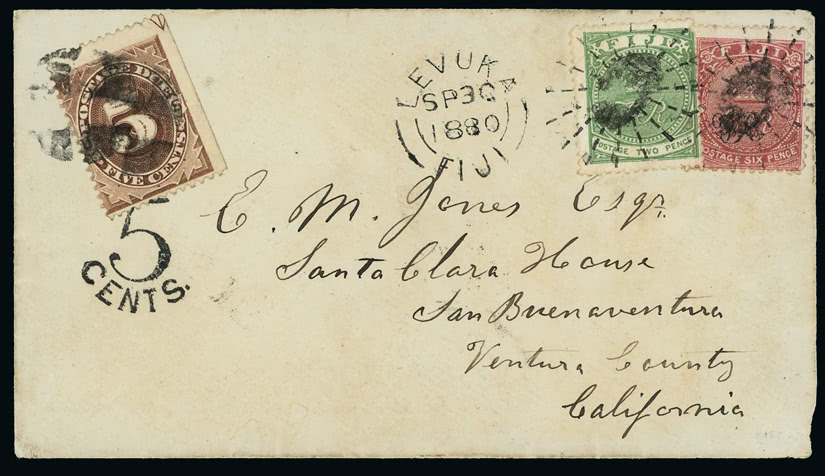 POSTAGE DUE
5
FIVE CENTS
LEVUKA
SP 30
1880
FIJI
FIJI
POSTAGE TWO PENCE
FIJI
POSTAGE SIX PENCE
5
CENTS.
E. M. Jones Esqr.
Santa Clara House
San Buenaventura
Ventura County
California